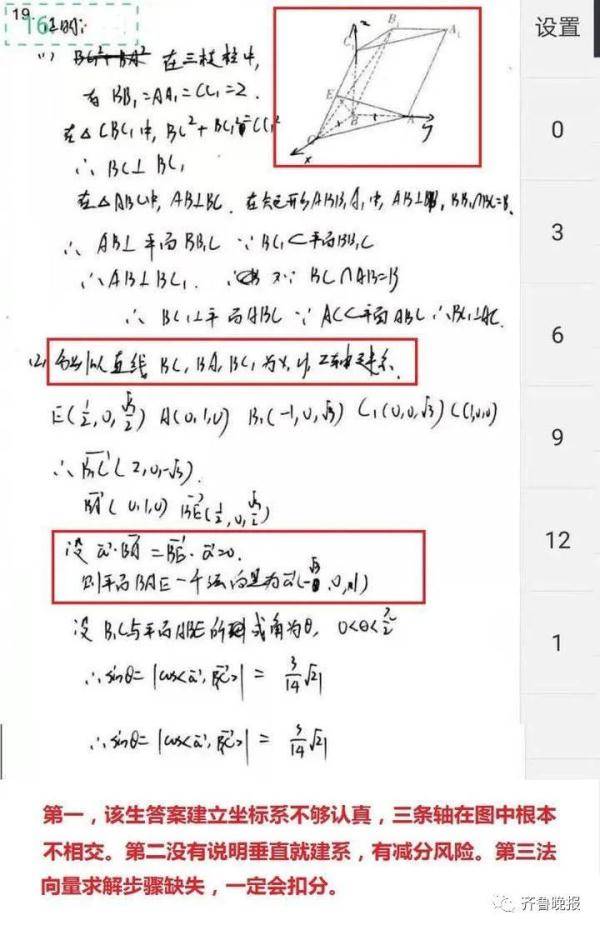 19.
16
证明:
设置
(1) BC²+BA² 在三棱柱中,
有BB₁=AA₁=CC₁=2.
在△CBC₁中, BC²+BC₁²=CC₁²
∴ BC⊥BC₁
在△ABC中, AB⊥BC. 在矩形ABB₁A₁中, AB⊥BB₁, BB₁∩BC=B.
∴ AB⊥平面BB₁C ∵BC₁⊂平面BB₁C
∴AB⊥BC₁. 又∵ BC∩AB=B
∴ BC₁⊥平面ABC ∵ AC⊂平面ABC ∴BC₁⊥AC.
(2) 分别以直线 BC, BA, BC₁ 为x, y, z轴建系.
E(1/2, 0, √3/2) A(0,1,0) B₁(-1,0,√3) C₁(0,0,√3) C(1,0,0)
∴B₁C(2,0,-√3).
BA(0,1,0) BE(1/2,0,√3/2)
设 a·BA=BE·a=0.
则平面BAE一个法向量为a(-√3,0,1)
设B₁C与平面ABE所成角为θ, 0<θ<π/2
∴sinθ=|cos<a, B₁C>|= 3/14 √21
∴sinθ=|cos<a, B₁C>|= 3/14 √21
z
B₁
A₁
C₁
E
B
A
y
C
x
0
3
6
9
12
1
第一，该生答案建立坐标系不够认真，三条轴在图中根本
不相交。第二没有说明垂直就建系，有减分风险。第三法
向量求解步骤缺失，一定会扣分。
齐鲁晚报